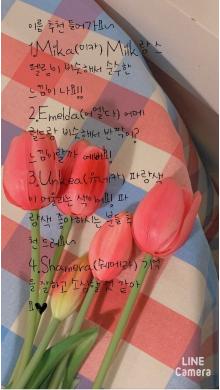 이름 추천 들어가요~
1.Milka(미카) Milk랑 스
펠링이 비슷해서 순수한
느낌이 나요!!
2.Emelda(에멜다) 에메
랄드랑 비슷해서 반짝이?
느낌이랄까 예뻐요
3.Unkea(우네카) 파랑색
이 어울리는 색이에요! 파
랑색 좋아하시는 분들 추
천 드려요~
4.Shamera(쉐메라) 기억
을 잘하고 조심할 것 같아
요♥
LINE
Camera